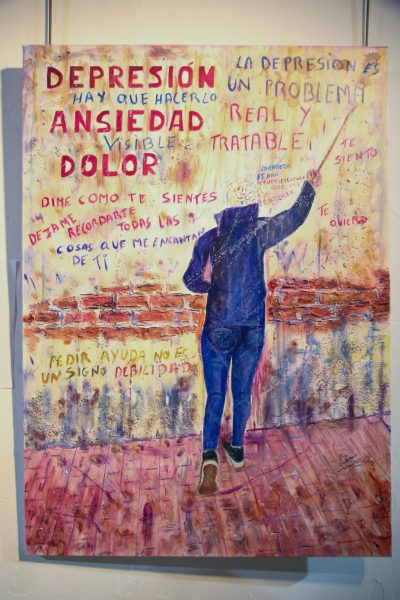 DEPRESIÓN
HAY QUE HACERLO
ANSIEDAD
VISIBLE
DOLOR
LA DEPRESION ES
UN PROBLEMA
REAL Y
TRATABLE!
TE
SIENTO
TE
QUIERO
DIME COMO TE SIENTES
DEJAME
RECORDARTE
TODAS LAS
COSAS QUE ME ENCANTAN
DE TI
PEDIR AYUDA NO ES
UN SIGNO DEBILIDAD